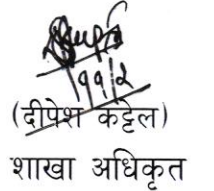 ११/२
(दीपेश कट्टेल)
शाखा अधिकृत